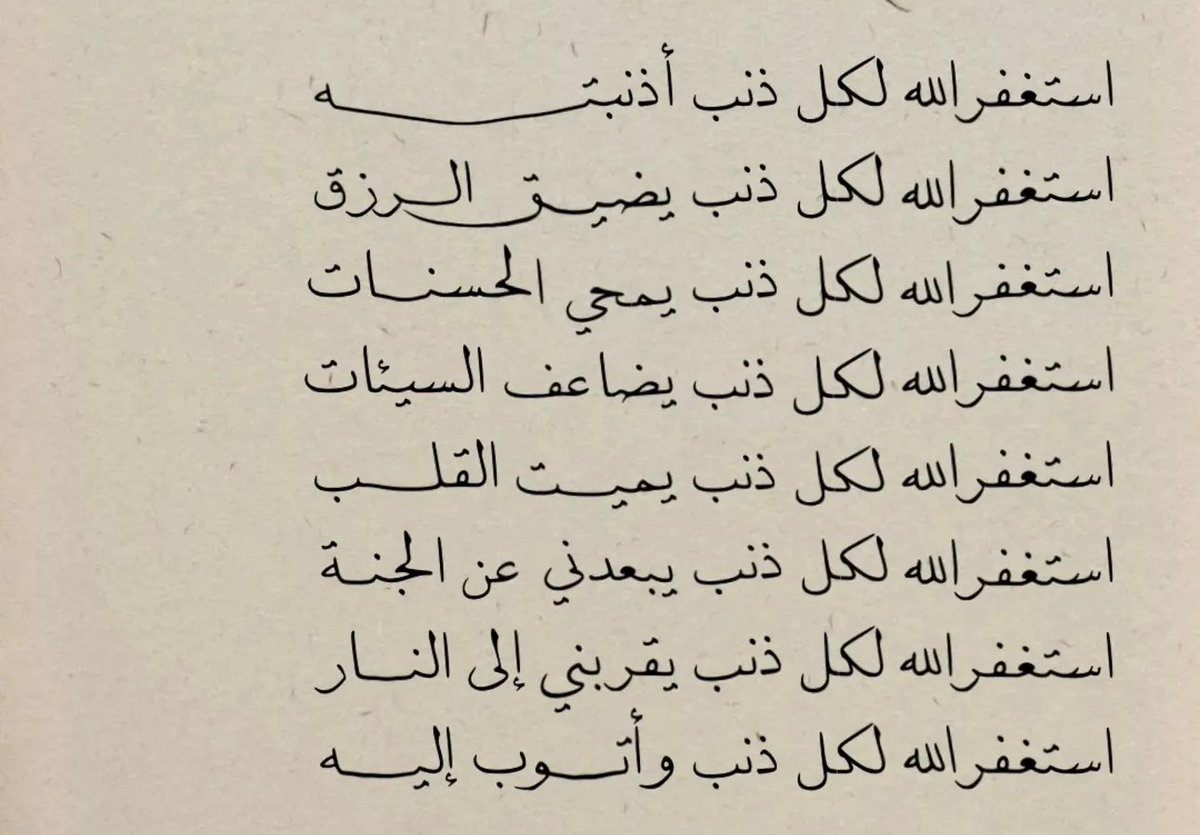 استغفر الله لكل ذنب أذنبته
استغفر الله لكل ذنب يضيق الرزق
استغفر الله لكل ذنب يمحي الحسنات
استغفر الله لكل ذنب يضاعف السيئات
استغفر الله لكل ذنب يميت القلب
استغفر الله لكل ذنب يبعدني عن الجنة
استغفر الله لكل ذنب يقربني إلى النار
استغفر الله لكل ذنب وأتوب إليه